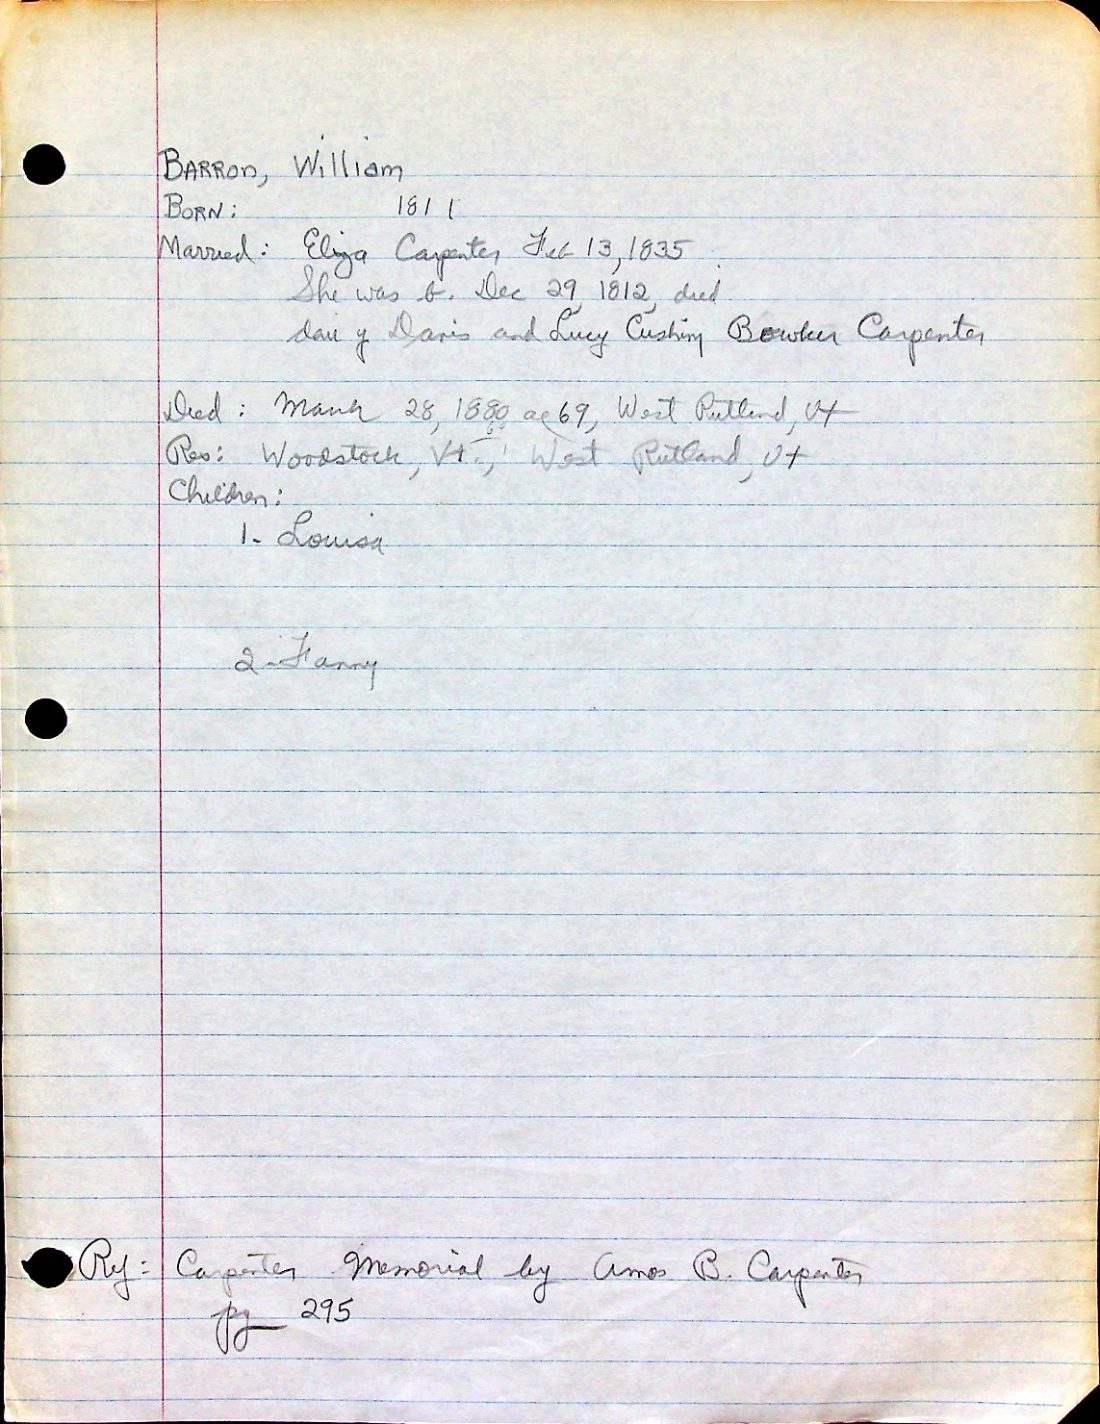 BARRON, William
BORN: 1811
Married: Eliza Carpenter Feb 13, 1835
She was b. Dec 29, 1812, died
dau of Davis and Lucy Cushing Bowker Carpenter
Died: March 28, 1880, ae 69, West Rutland, Vt
Res: Woodstock, Vt., West Rutland, Vt
Children:
1- Louisa
2- Fanny
Ref: Carpenter Memorial by Amos B. Carpenter
pg 295